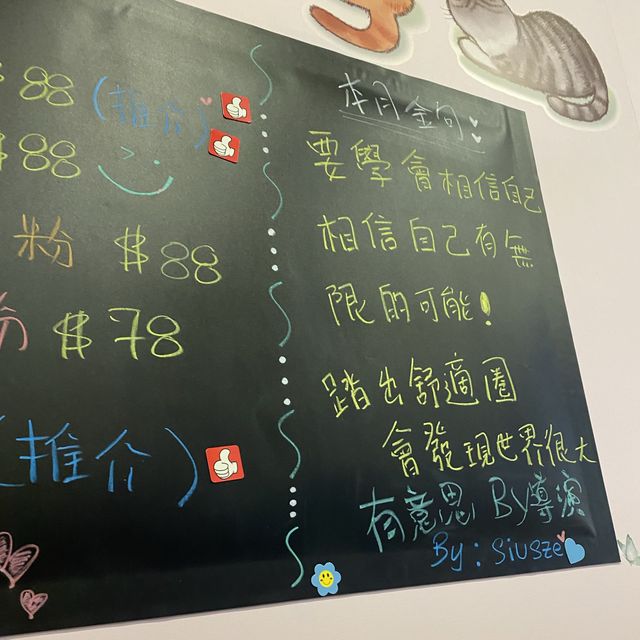 $88 (推介)
$88
粉 $88
粉 $78
(推介)
本月金句
要學會相信自己
相信自己有無
限的可能!
踏出舒適圈
會發現世界很大
有意思 By導演
By: siusze